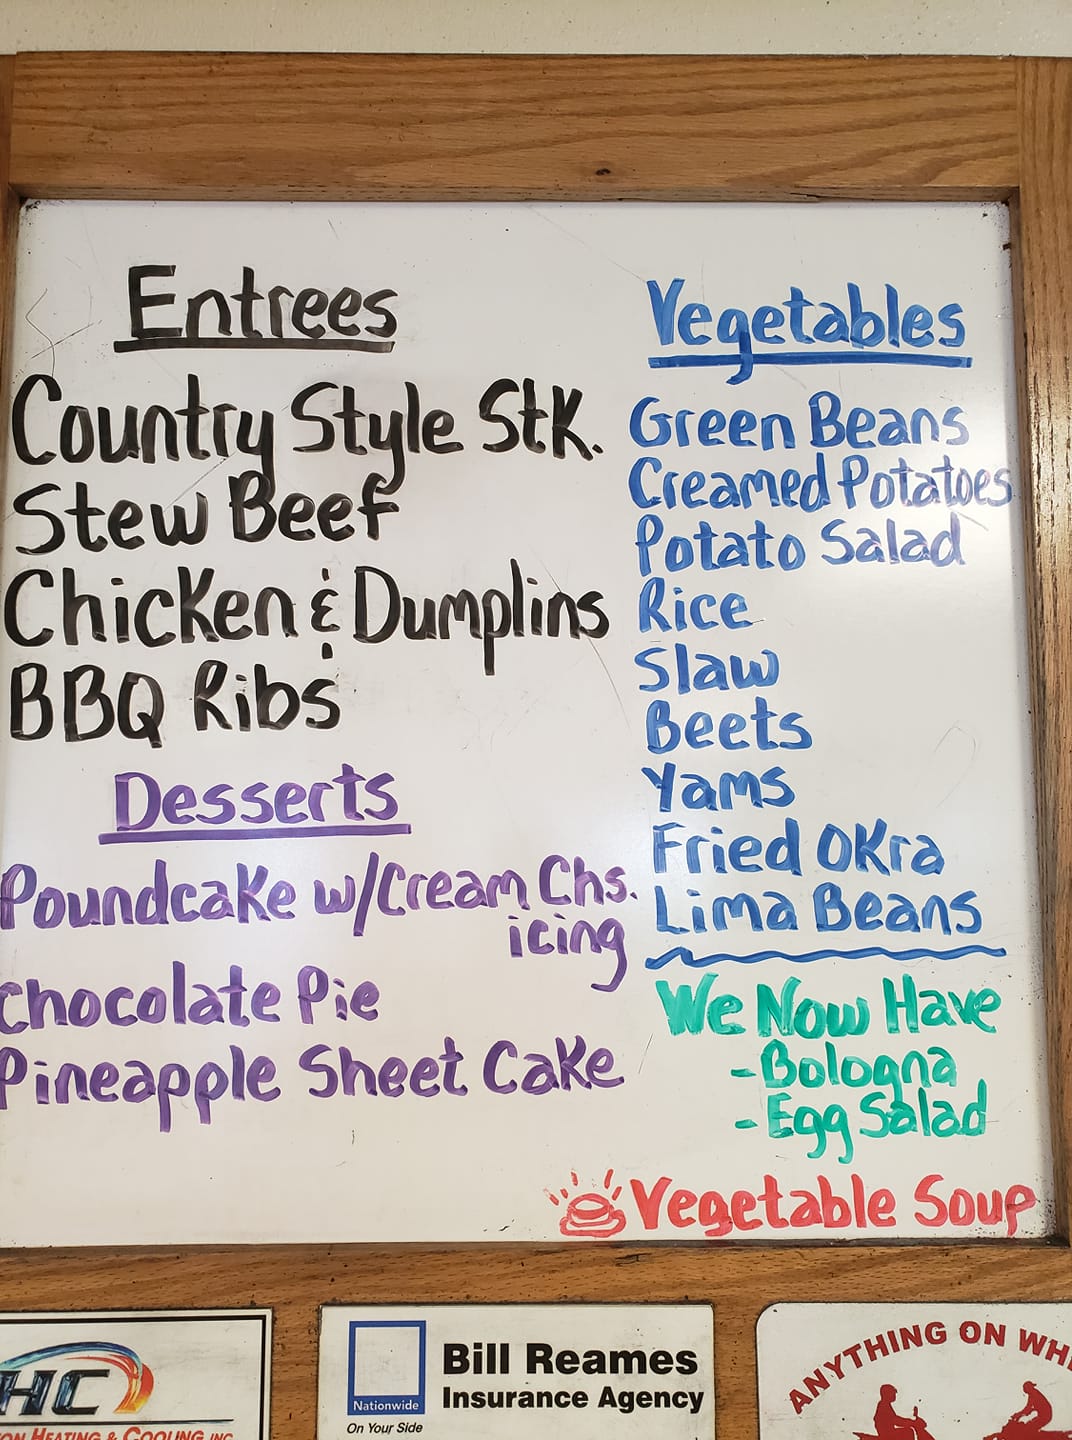 Entrees
Country Style Stk.
Stew Beef
Chicken & Dumplins
BBQ Ribs
Desserts
Poundcake w/Cream Chs.
icing
Chocolate Pie
Pineapple Sheet Cake
Vegetables
Green Beans
Creamed Potatoes
Potato Salad
Rice
Slaw
Beets
Yams
Fried Okra
Lima Beans
We Now Have
-Bologna
-Egg Salad
Vegetable Soup
HC
HEATING & COOLING INC
Nationwide
On Your Side
Bill Reames
Insurance Agency
ANYTHING ON